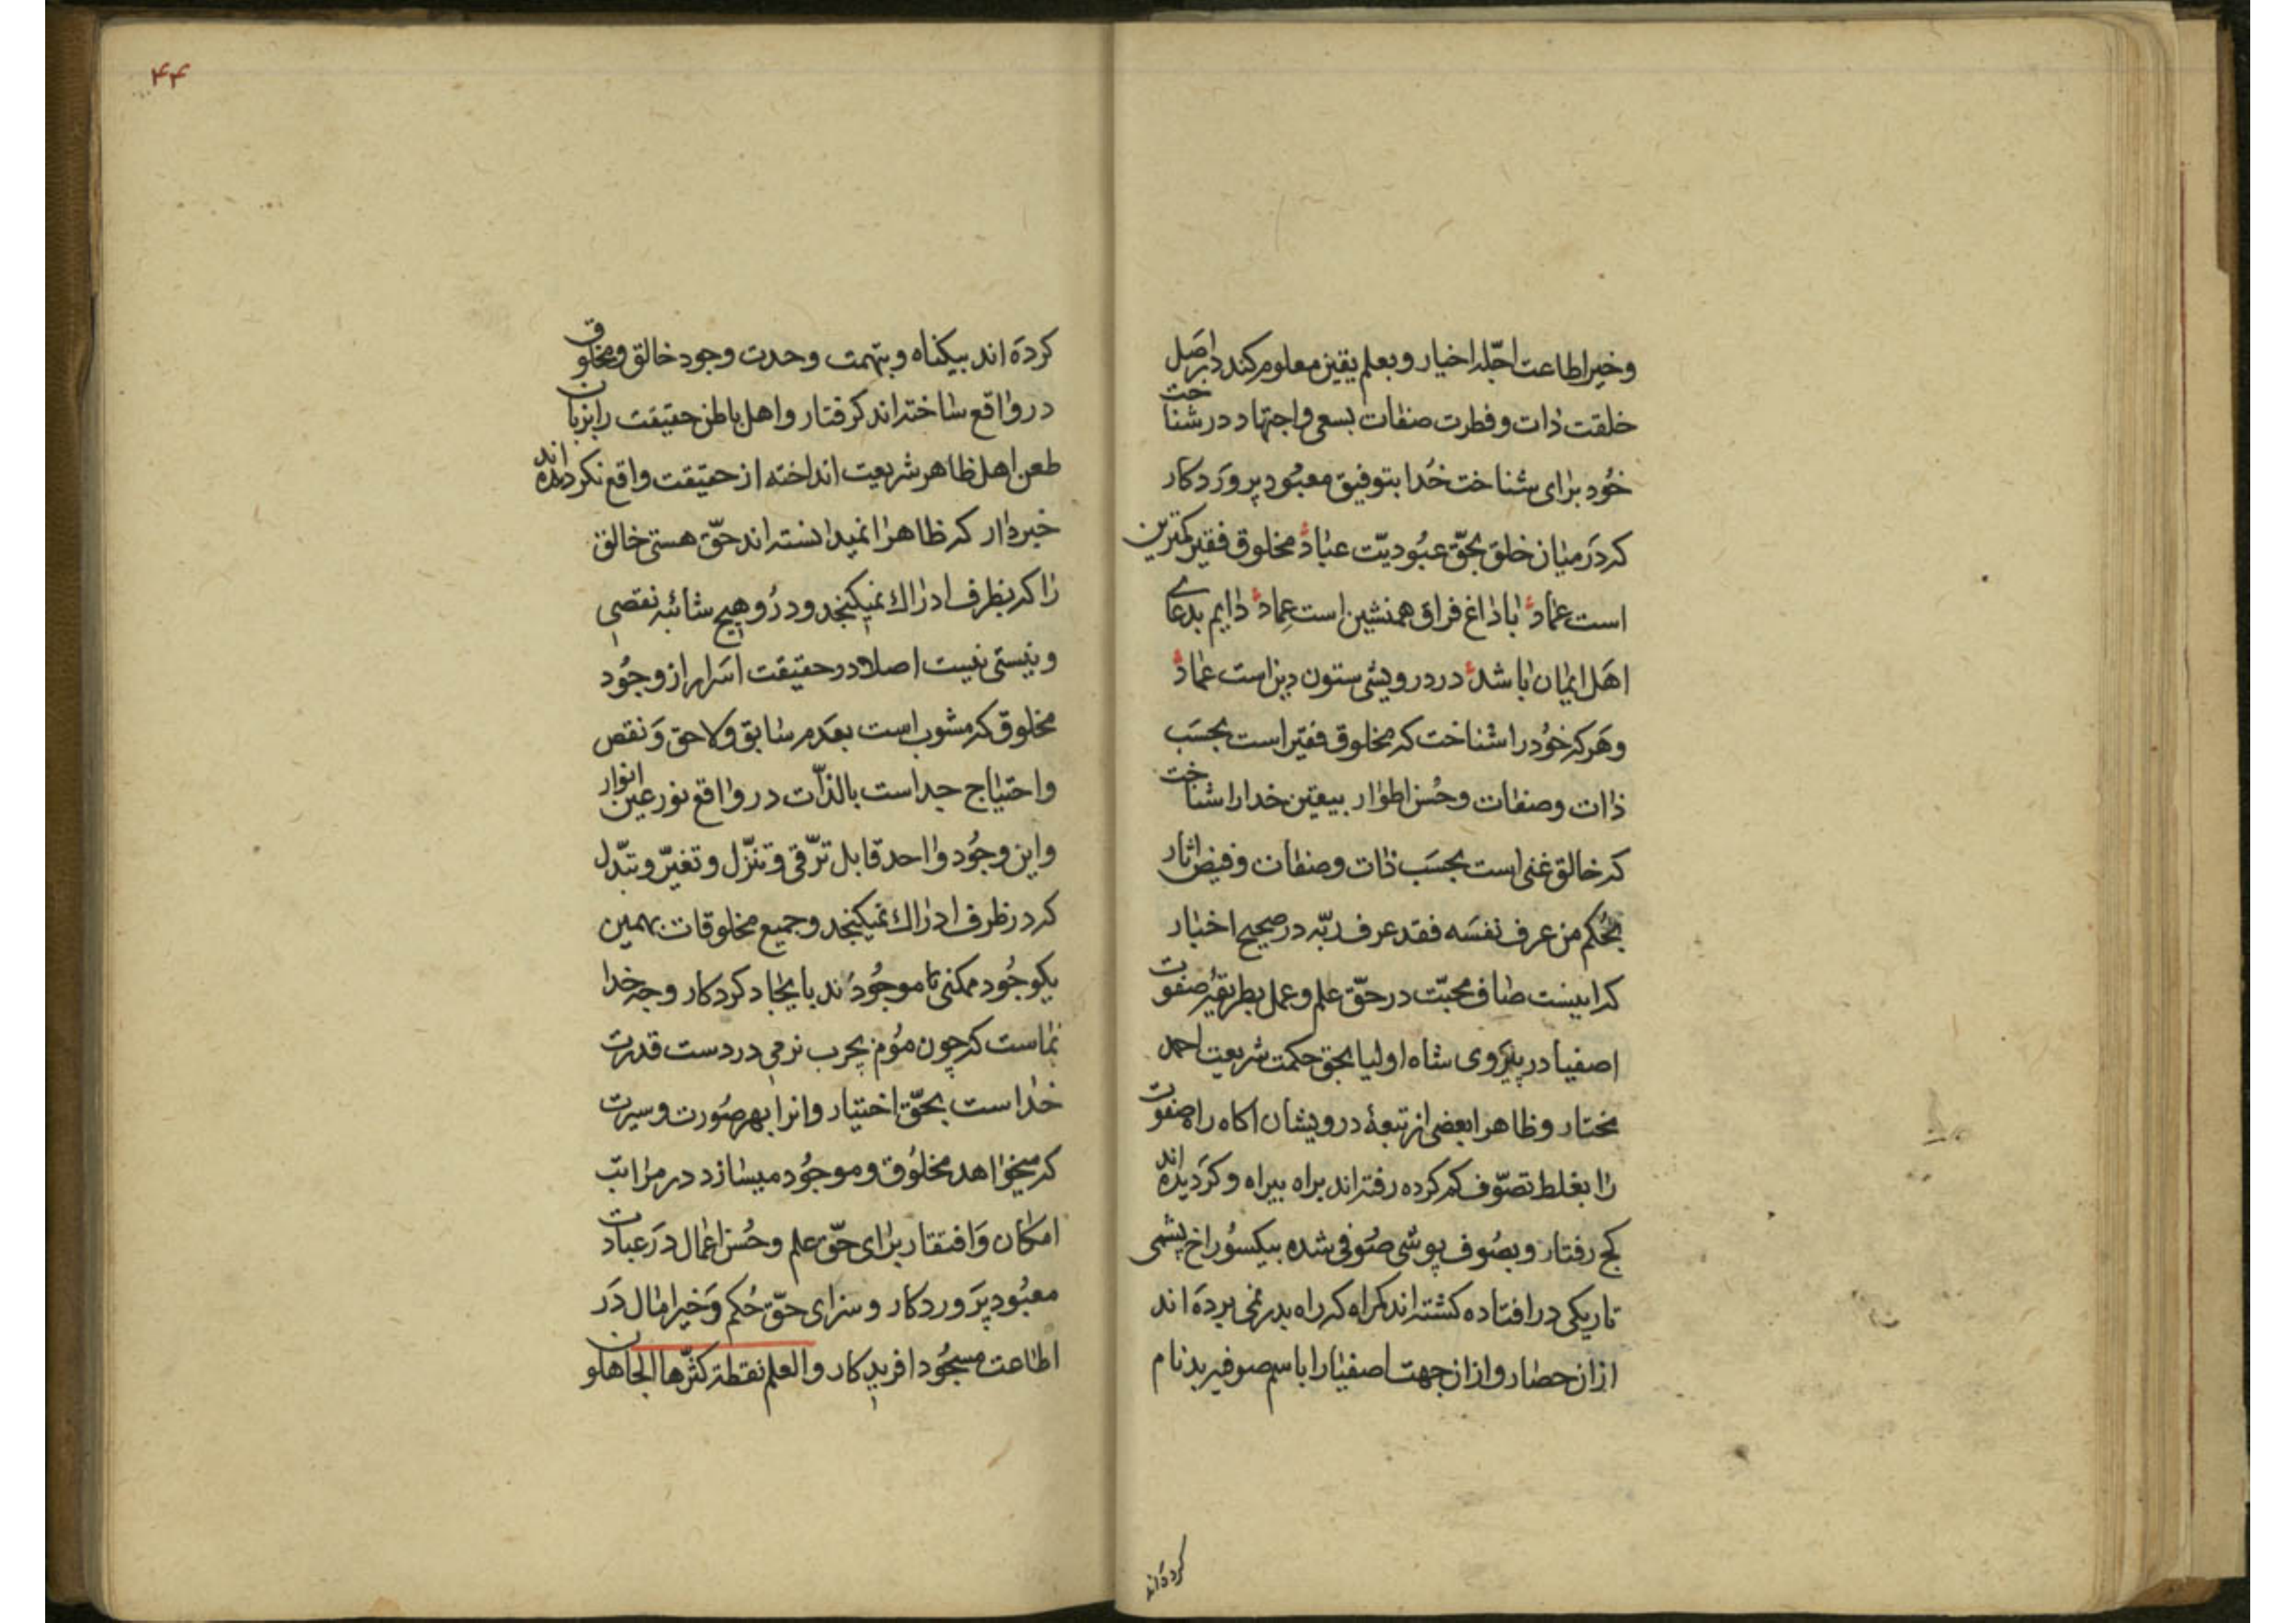 وخیر اطاعت اجلّه اخیار و بعلم یقین معلوم کند در اصل
خلقت ذات و فطرت صفات بسعی و اجتهاد در شناخت
خود برای شناخت خدا بتوفیق معبود پروردکار
که در میان خلق بحقّ عبودیّت عباد مخلوق فقیر کمترین
است عماد با داغ فراق همنشین است عماد دایم بدعای
اهل ایمان باشد در درویشی ستون دین است عماد
و هرکه خود را شناخت که مخلوق فقیر است بحسب
ذات وصفات وحسن اطوار بیقین خدا را شناخت
که خالق غنی است بحسب ذات وصفات وفیض اثار
بحکم من عرف نفسه فقد عرف ربّه در صحیح اخبار
که اینست صاف محبّت در حقّ علم و عمل بطریقهٔ صفوت
اصفیا در پیروی شاه اولیا بحق حکمت شریعت احمد
مختار و ظاهرا بعضی از تبعهٔ درویشان اکاه راه صفوت
را بغلط تصوّف کم کرده رفته‌اند براه بیراه و کردیده‌اند
کج رفتار و بصوف پوشی صوفی شده بیکسوراخ پشمی
تاریکی در افتاده کشته‌اند کمراه که راه بدر نمی برده‌اند
از ان حصار و از ان جهت اصفیا را باسم صوفیه بدنام
کرده‌اند
۴۴
کرده‌اند بیکناه و بتهمت وحدت وجود خالق و مخلوق
در واقع ساخته‌اند کرفتار و اهل باطن حقیقت را بزبان
طعن اهل ظاهر شریعت انداخته از حقیقت واقع نکردیده‌اند
خبردار که ظاهرا نمیدانسته‌اند حقّ هستی خالق
را که بظرف ادراك نمیکنجد و در و هیچ شائبه نقصی
و نیستی نیست اصلا در حقیقت اسرار از وجود
مخلوق که مشوب است بعدم سابق ولاحق و نقص
و احتیاج جداست بالذّات در واقع نور عین انوار
و این وجود واحد قابل ترّقی و تنزّل و تغیّر و تبّدل
که در ظرف ادراك نمیکنجد و جمیع مخلوقات بهمین
یکوجود ممکنی ما موجودند بایجاد کردکار و جه خدا
نماست که چون موم بچرب نرمی در دست قدرت
خداست بحقّ اختیار و انرا بهر صورت و سیرت
که میخواهد مخلوق و موجود میسازد در مراتب
امکان و افتقار برای حقّ علم و حسن اعمال در عبادت
معبود پروردکار و سزای حقّ حکم و خیر امال در
اطاعت مسجود افریدکار والعلم نقطة کثّرها الجاهلون